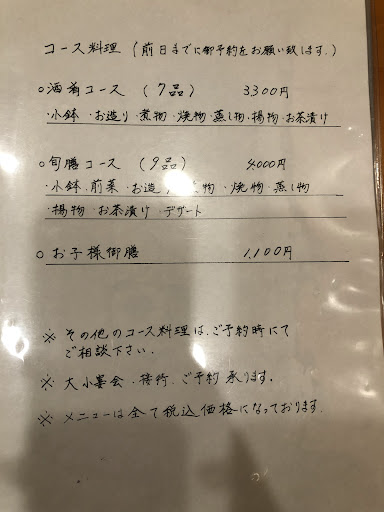 コース料理 (前日までに御予約をお願い致します.)
○酒肴コース (7品) 3300円
・小鉢・お造り・煮物・焼物・蒸し物・揚物・お茶漬け
○旬膳コース (9品) 4,000円
・小鉢.前菜・お造 物・焼物・蒸し物
・揚物・お茶漬け・デザート
○お子様御膳 1,100円
※ その他のコース料理は、ご予約時にて
ご相談下さい.
※ 大小宴会・接待.ご予約承ります.
※ メニューは全て税込価格になっております.